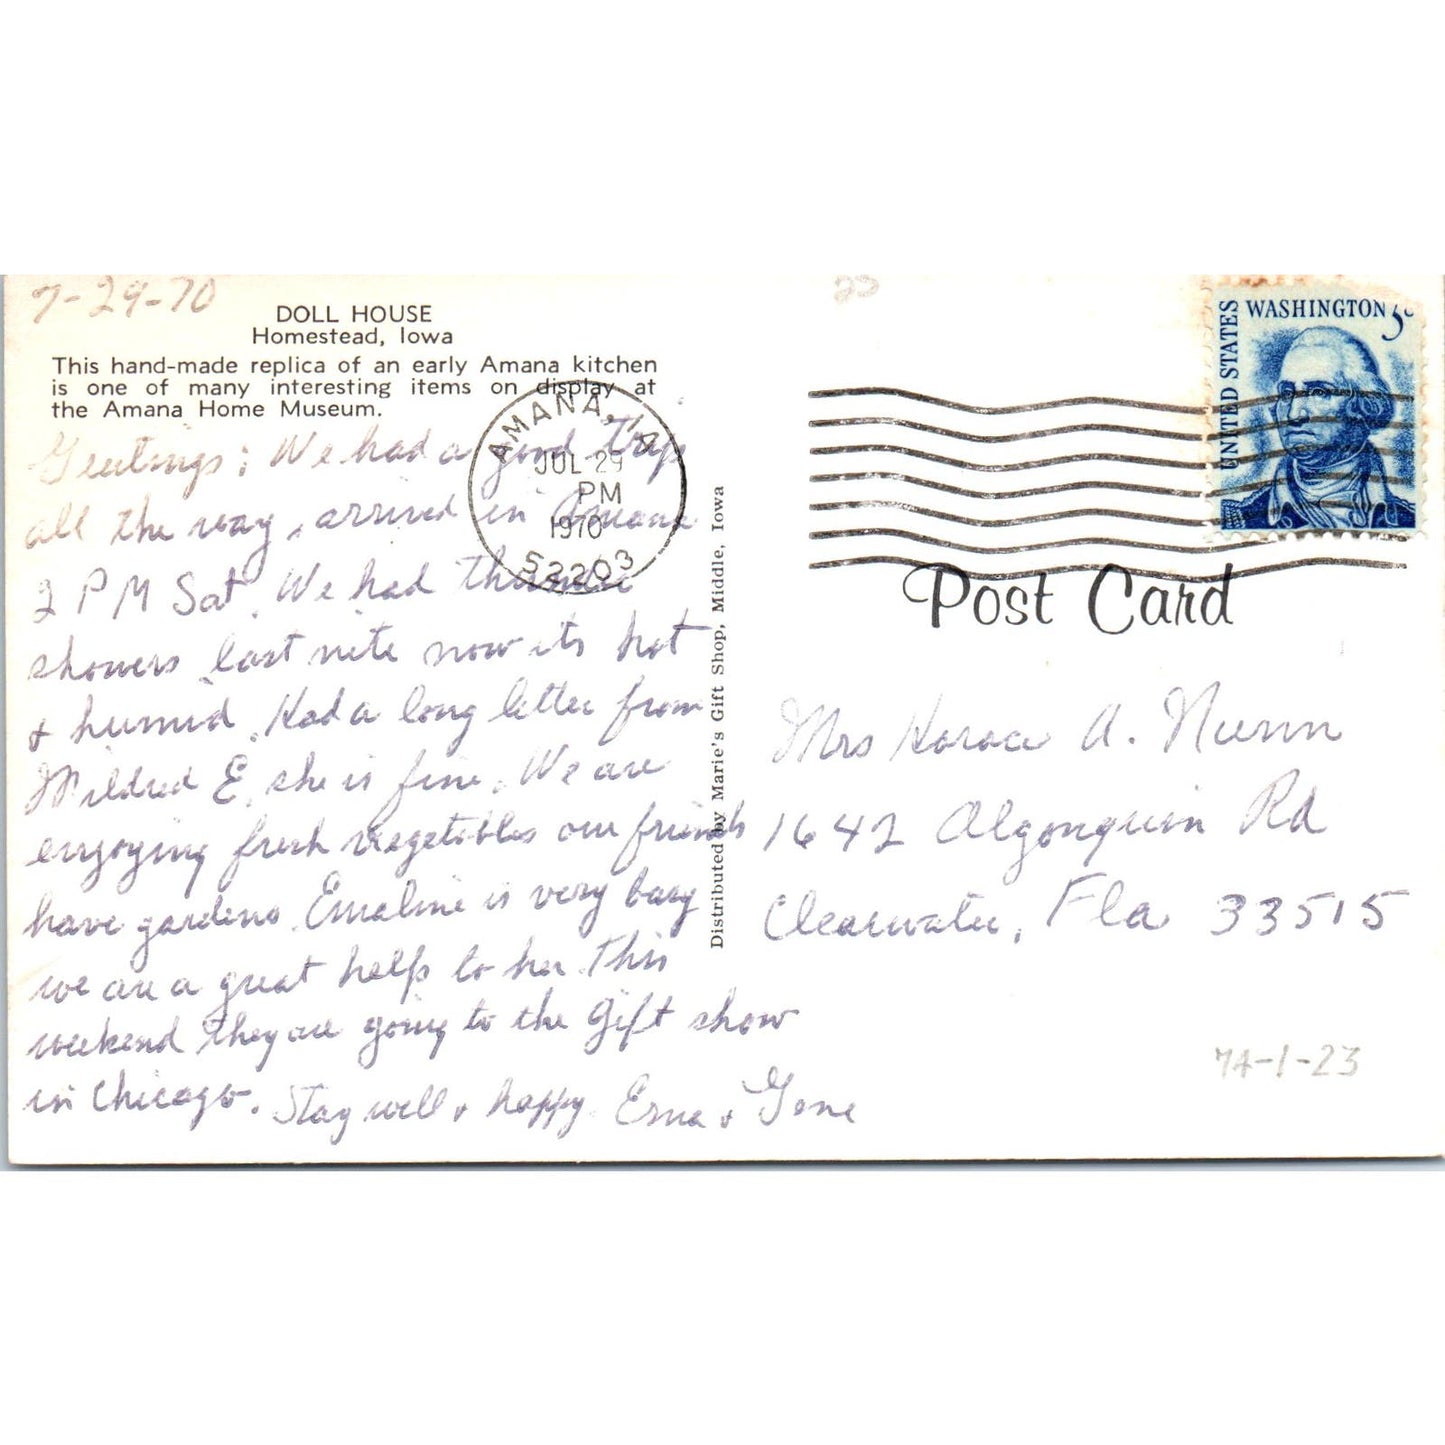 7-29-70
DOLL HOUSE
Homestead, Iowa
This hand-made replica of an early Amana kitchen
is one of many interesting items on display at
the Amana Home Museum.
Greetings: We had a good trip
all the way, arrived in Amana
2 PM Sat. We had thunder
showers last nite now its hot
& humid. Had a long letter from
Mildred E. she is fine. We are
enjoying fresh vegetables our friends
have gardens. Emaline is very busy
we are a great help to her. This
weekend they are going to the gift show
in Chicago. Stay well & happy. Erna & Gene
AMANA, IA
JUL 29
PM
1970
52203
Distributed by Marie's Gift Shop, Middle, Iowa
UNITED STATES
WASHINGTON 5c
Post Card
Mrs Horace A. Nunn
1642 Algonquin Rd
Clearwater, Fla 33515
7A-1-23